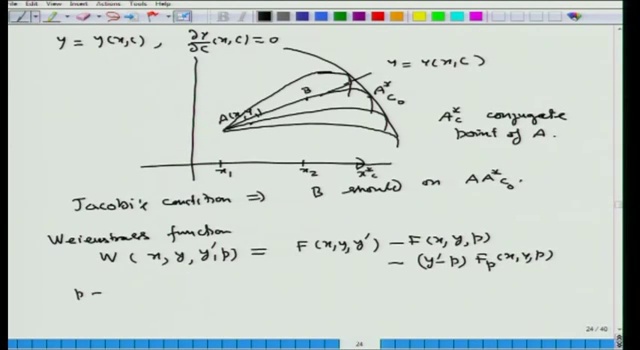 View Insert Actions Tools Help
y = y(x,c) , ∂y/∂c (x,c) = 0
y = y(x,c)
B
A*c₀
A(x₁,y₁)
A*c conjugate
point of A.
x₁ x₂ x*c
Jacobi's condition ⇒ B should on AA*c₀.
Weierstrass function
W (x, y, y', p) = F(x,y,y') - F(x,y,p)
- (y'-p) Fp(x,y,p)
p -
24 / 40
24